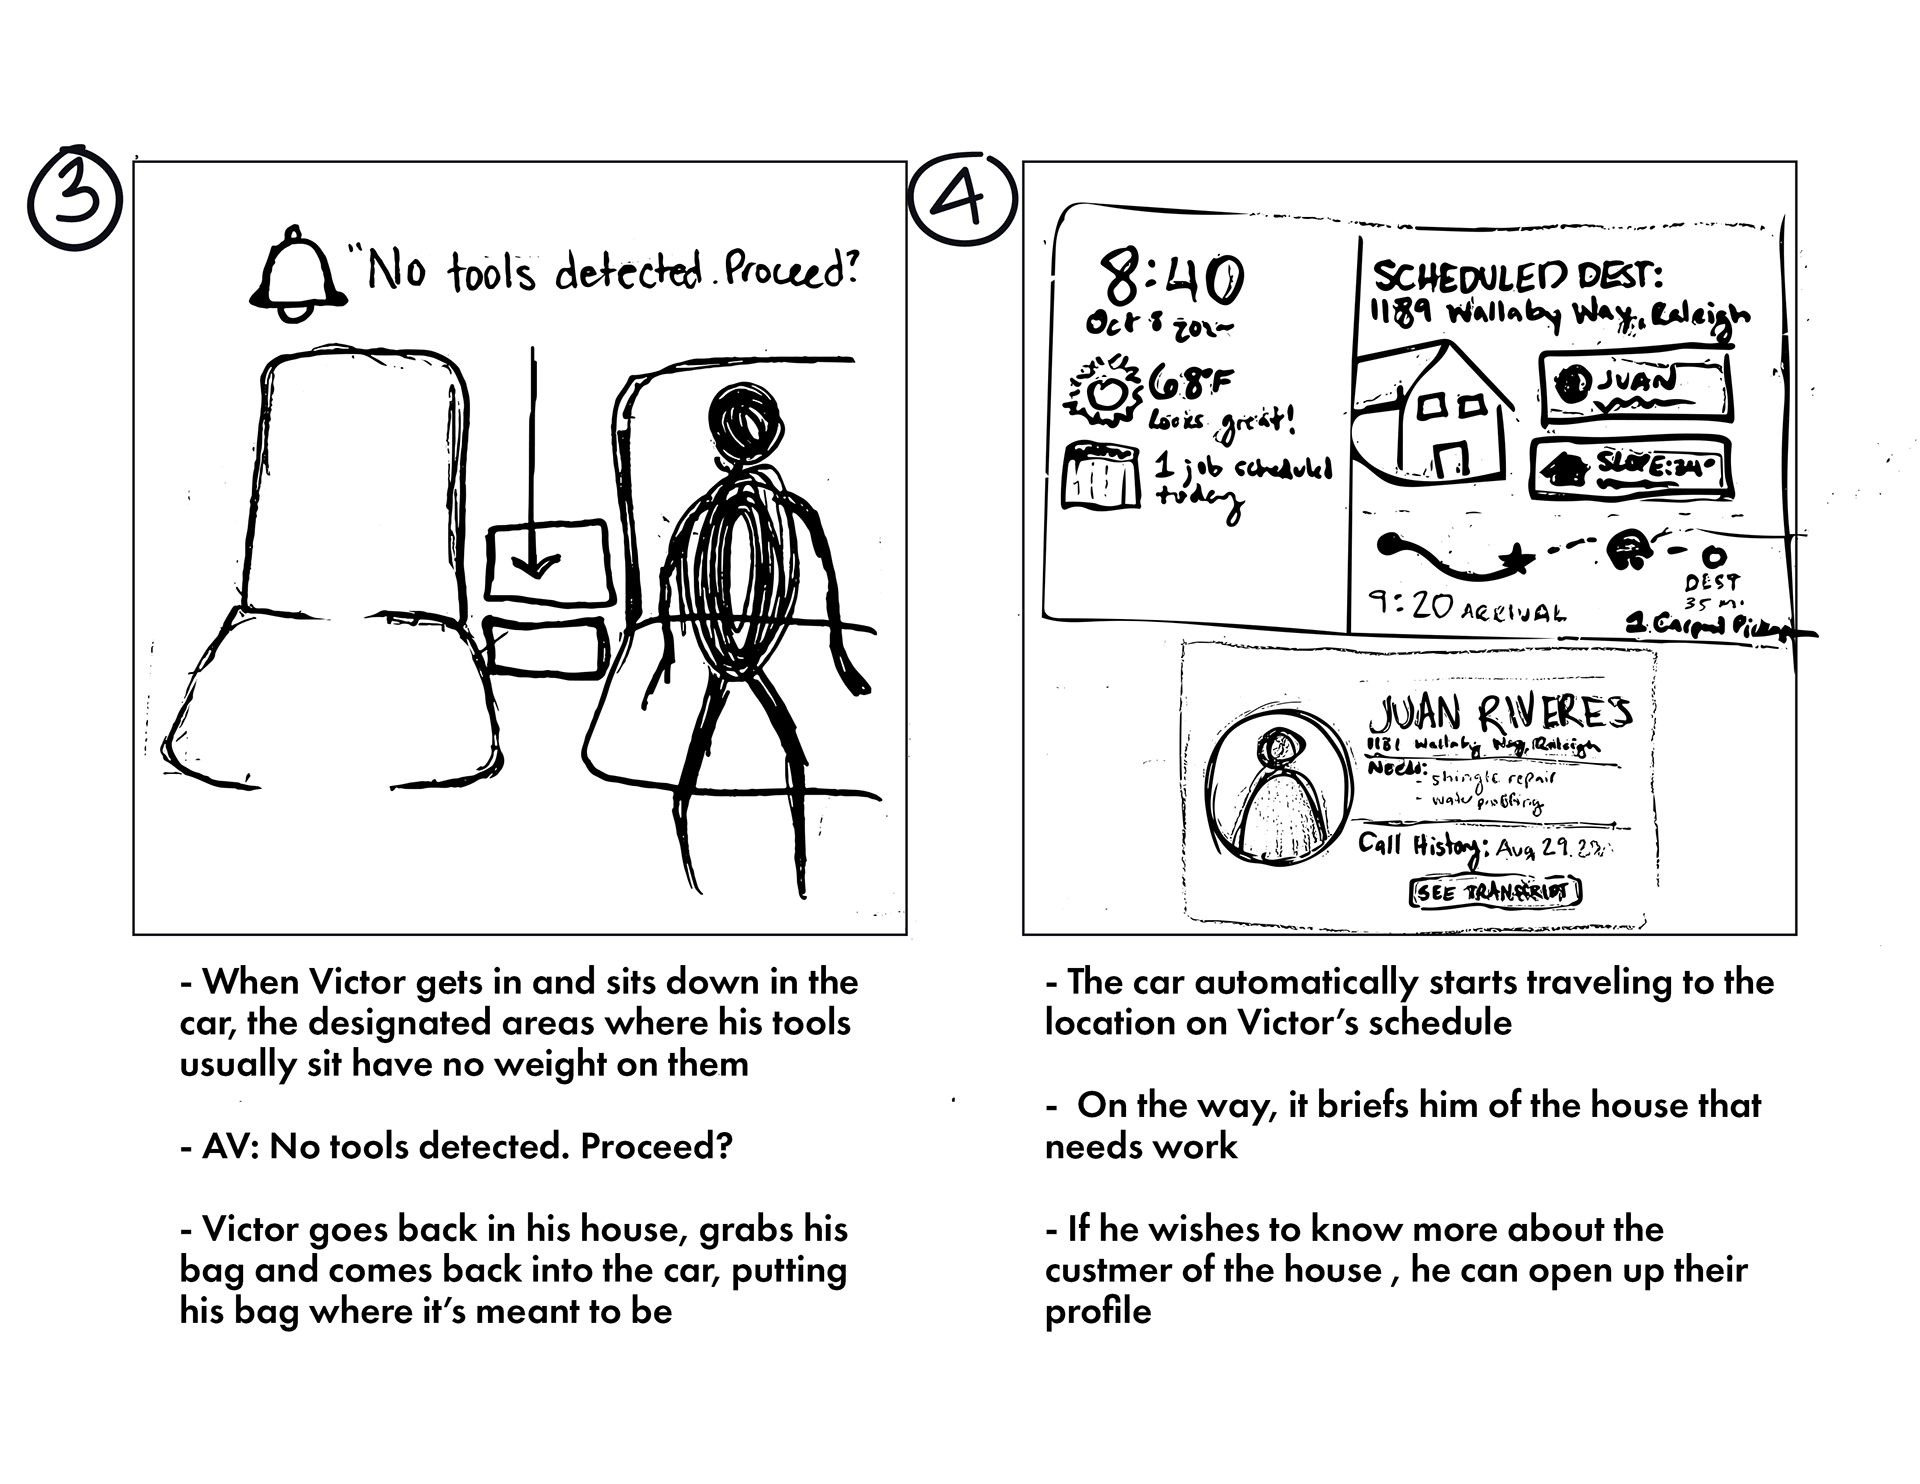 3
"No tools detected. Proceed?
- When Victor gets in and sits down in the
car, the designated areas where his tools
usually sit have no weight on them
- AV: No tools detected. Proceed?
- Victor goes back in his house, grabs his
bag and comes back into the car, putting
his bag where it's meant to be
4
8:40
Oct 8
68°F
Looks great!
1 job scheduled
today
SCHEDULED DEST:
1189 Wallaby Way, Raleigh
JUAN
SLOPE:
9:20 ARRIVAL
DEST
35 m.
JUAN RIVERES
1181 Wallaby Way, Raleigh
Needs:
- shingle repair
- water
Call History: Aug 29,
SEE TRANSCRIPT
- The car automatically starts traveling to the
location on Victor’s schedule
- On the way, it briefs him of the house that
needs work
- If he wishes to know more about the
custmer of the house , he can open up their
profile